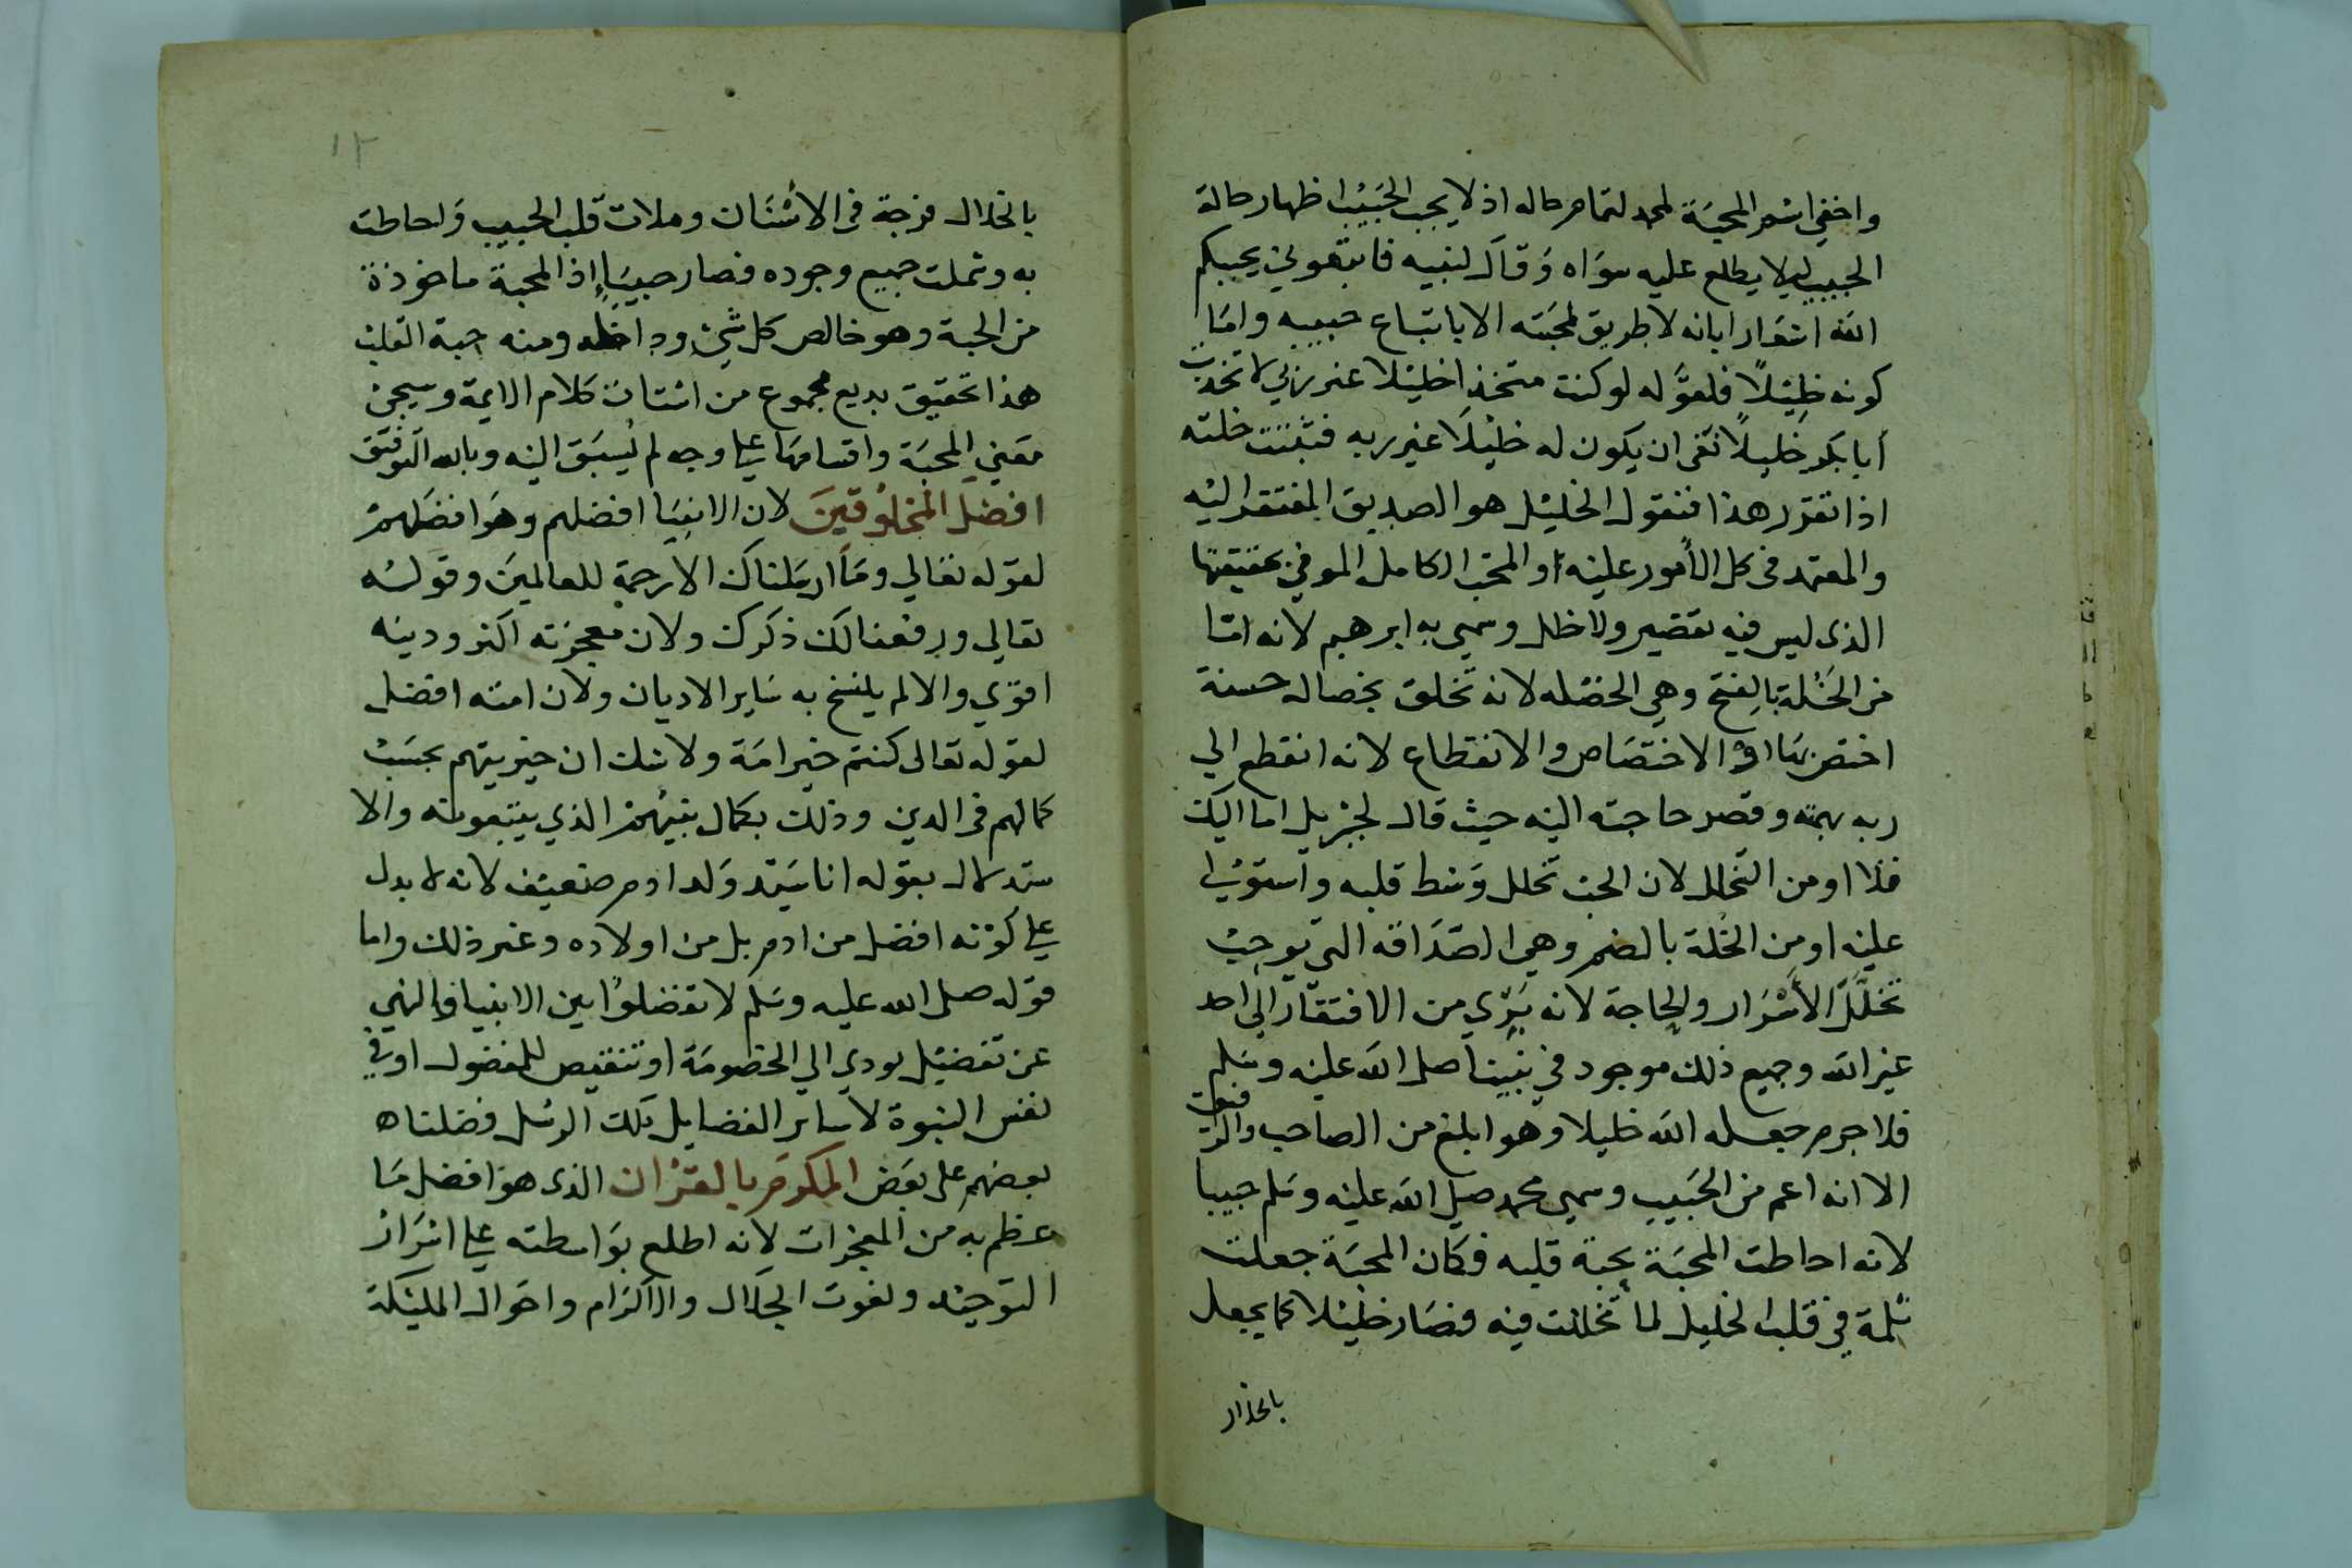 واخفي اسم المحبة لمحمد لتمام حاله اذ لا يجب الحبيب اظهار حالة
الحبيب ليلا يطلع عليه سواه وقال لنبيه فاتبعوني يحببكم
الله اشعارا بانه لا طريق لمحبته الا باتباع حبيبه واما
كونه خليلا فلقوله لو كنت متخذا خليلا غير ربي لاتخذت
أبا بكر خليلا نفى ان يكون له خليلا غير ربه فثبتت خلته
اذا تقرر هذا فنقول الخليل هو الصديق المفتقر اليه
والمعتمد في كل الأمور عليه او المحب الكامل الموفي بحقيقتها
الذي ليس فيه تقصير ولا خلل وسمي به ابرهيم لانه اما
من الخلة بالفتح وهي الخصله لانه تخلق بخصاله حسنة
اختص بها او الاختصاص والانقطاع لانه انقطع الي
ربه بهمته وقصر حاجته اليه حيث قال لجبريل اما اليك
فلا او من التخلل لان الحب تخلل وسط قلبه واستولي
عليه او من الخلة بالضم وهي الصداقه التي توجب
تخلل الأسرار والحاجة لانه تبري من الافتقار الي احد
غير الله وجميع ذلك موجود في نبينا صلى الله عليه وسلم
فلا جرم جعله الله خليلا وهو ابلغ من الصاحب والرفيق
الا انه اعم من الحبيب وسمي محمد صلي الله عليه وسلم حبيبا
لانه احاطت المحبة بحبة قلبه فكان المحبة جعلت
ثلمة في قلب الخليل لما تخللت فيه فصار خليلا كما يجعل
بالخلال
١٢
بالخلال فرجة في الاسنان وملات قلب الحبيب واحاطت
به وشملت جميع وجوده فصار حبيبا إذ المحبة ماخوذة
من الحبة وهو خالص كل شيء وداخله ومنه حبة القلب
هذا تحقيق بديع مجموع من اشتات كلام الايمة وسيجئ
معني المحبة واقسامها علي وجه لم يسبق اليه وبالله التوفيق
افضل المخلوقين لان الانبيا افضلهم وهو افضلهم
لقوله تعالي وما ارسلناك الا رحمة للعالمين وقوله
تعالي ورفعنا لك ذكرك ولان معجزته اكثر ودينه
اقوي والا لم ينسخ به ساير الاديان ولان امته افضل
لقوله تعالى كنتم خير امة ولا شك ان خيريتهم بحسب
كمالهم في الدين وذلك بكمال نبيهم الذي يتبعونه والا
ستدلال بقوله انا سيد ولد ادم ضعيف لانه لا يدل
علي كونه افضل من ادم بل من اولاده وغير ذلك واما
قوله صلى الله عليه وسلم لا تفضلوا بين الانبيا فالنهي
عن تفضيل يودي الي الخصومة او تنقيص للمفضول او في
نفس النبوة لا ساير الفضايل تلك الرسل فضلناه
بعضهم على بعض المكرم بالقران الذي هو افضل ما
عظم به من المعجزات لانه اطلع بواسطته علي اسرار
التوحيد ونعوت الجلال والاكرام واحوال المليكة